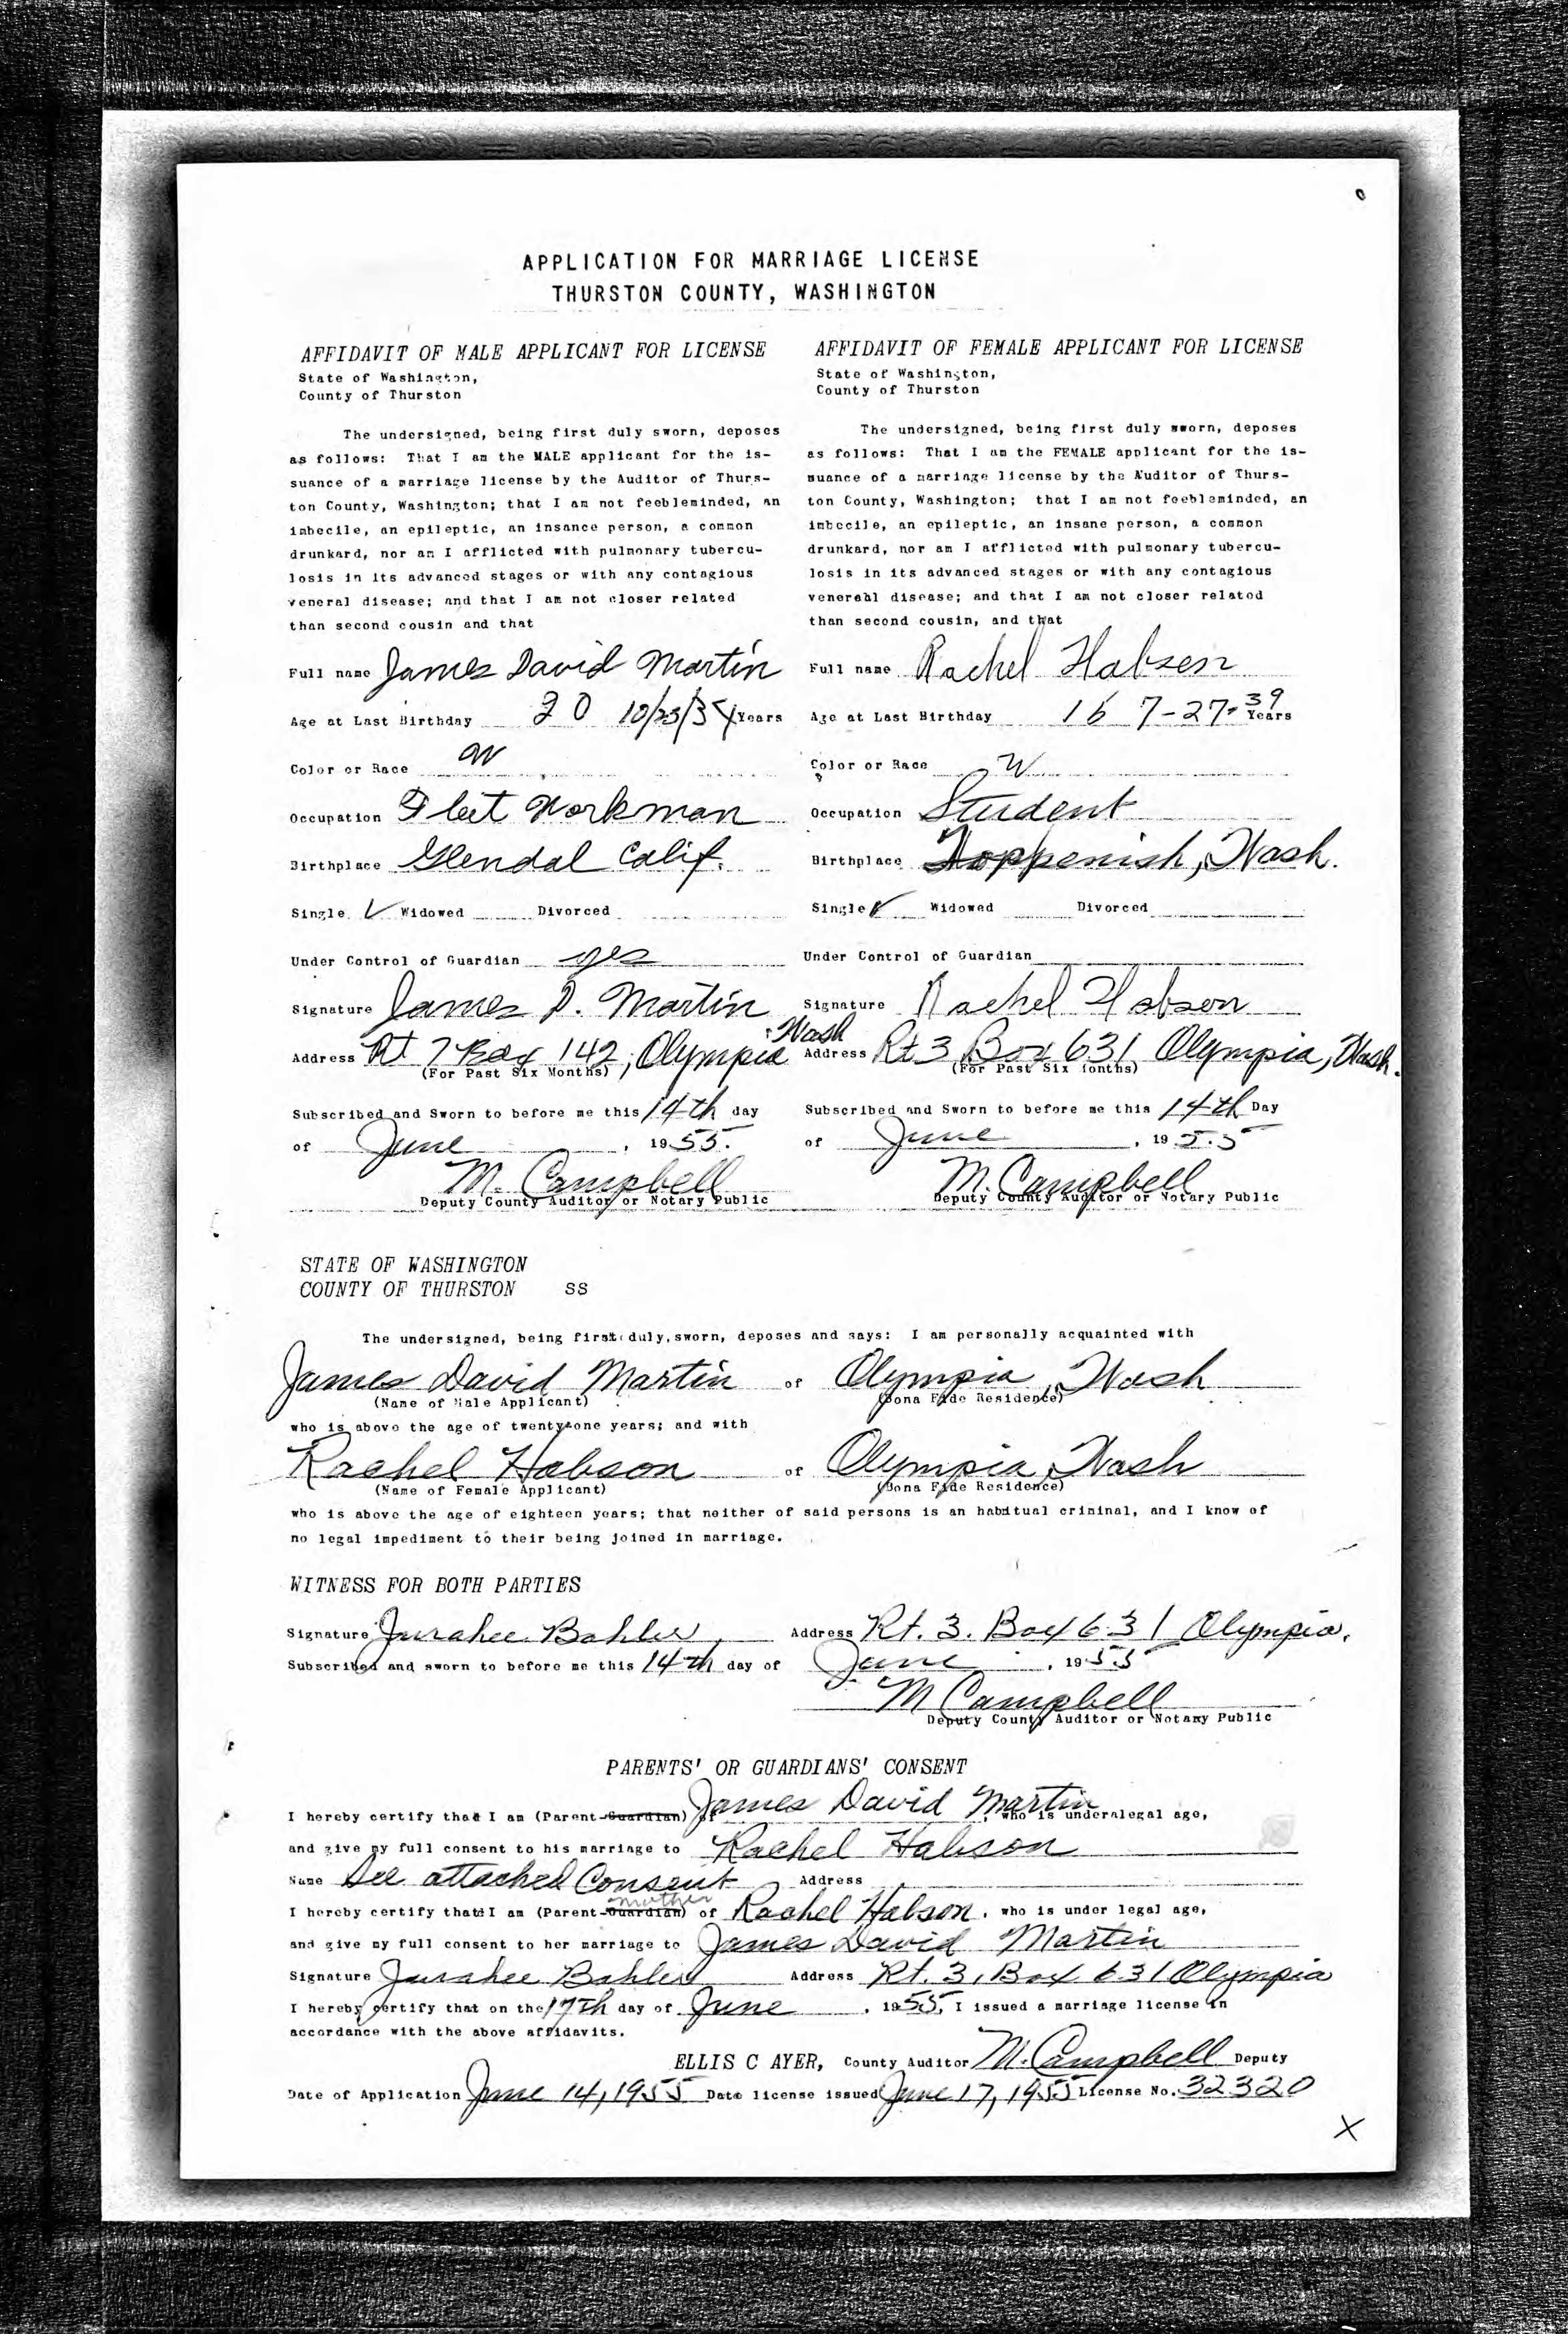 APPLICATION FOR MARRIAGE LICENSE
THURSTON COUNTY, WASHINGTON
AFFIDAVIT OF MALE APPLICANT FOR LICENSE
State of Washington,
County of Thurston
The undersigned, being first duly sworn, deposes
as follows: That I am the MALE applicant for the is-
suance of a marriage license by the Auditor of Thurs-
ton County, Washington; that I am not feebleminded, an
imbecile, an epileptic, an insance person, a common
drunkard, nor am I afflicted with pulmonary tubercu-
losis in its advanced stages or with any contagious
veneral disease; and that I am not closer related
than second cousin and that
Full name James David Martin
Age at Last Birthday 20 10/23/34 Years
Color or Race W
Occupation Workman
Birthplace Glendal Calif.
Single ✓ Widowed Divorced
Under Control of Guardian yes
Signature James D. Martin
Address Rt 7 Box 142, Olympia Wash
(For Past Six Months)
Subscribed and Sworn to before me this 14th day
of June, 1955.
M. Campbell
Deputy County Auditor or Notary Public
AFFIDAVIT OF FEMALE APPLICANT FOR LICENSE
State of Washington,
County of Thurston
The undersigned, being first duly sworn, deposes
as follows: That I am the FEMALE applicant for the is-
suance of a marriage license by the Auditor of Thurs-
ton County, Washington; that I am not feebleminded, an
imbecile, an epileptic, an insane person, a common
drunkard, nor am I afflicted with pulmonary tubercu-
losis in its advanced stages or with any contagious
venereal disease; and that I am not closer related
than second cousin, and that
Full name Rachel Habsen
Age at Last Birthday 16 7-27-39 Years
Color or Race W
Occupation Student
Birthplace Toppenish, Wash.
Single ✓ Widowed Divorced
Under Control of Guardian
Signature Rachel Habson
Address Rt 3 Box 631 Olympia, Wash.
(For Past Six Months)
Subscribed and Sworn to before me this 14th Day
of June, 1955
M. Campbell
Deputy County Auditor or Notary Public
STATE OF WASHINGTON
COUNTY OF THURSTON SS
The undersigned, being first duly sworn, deposes and says: I am personally acquainted with
James David Martin of Olympia, Wash
(Name of Male Applicant) (Bona Fide Residence)
who is above the age of twenty-one years; and with
Rachel Habson of Olympia, Wash
(Name of Female Applicant) (Bona Fide Residence)
who is above the age of eighteen years; that neither of said persons is an habitual criminal, and I know of
no legal impediment to their being joined in marriage.
WITNESS FOR BOTH PARTIES
Signature Address Rt. 3. Box 631 Olympia.
Subscribed and sworn to before me this 14th day of June, 1955
M Campbell
Deputy County Auditor or Notary Public
PARENTS' OR GUARDIANS' CONSENT
I hereby certify that I am (Parent-Guardian) of James David Martin, who is underalegal age,
and give my full consent to his marriage to Rachel Habson
Name See attached Consent Address
mother
I hereby certify that I am (Parent-Guardian) of Rachel Habson, who is under legal age,
and give my full consent to her marriage to James David Martin
Signature Address Rt. 3, Box 631 Olympia
I hereby certify that on the 17th day of June, 1955, I issued a marriage license in
accordance with the above affidavits.
ELLIS C AYER, County Auditor M. Campbell Deputy
Date of Application June 14, 1955 Date license issued June 17, 1955 License No. 32320
X